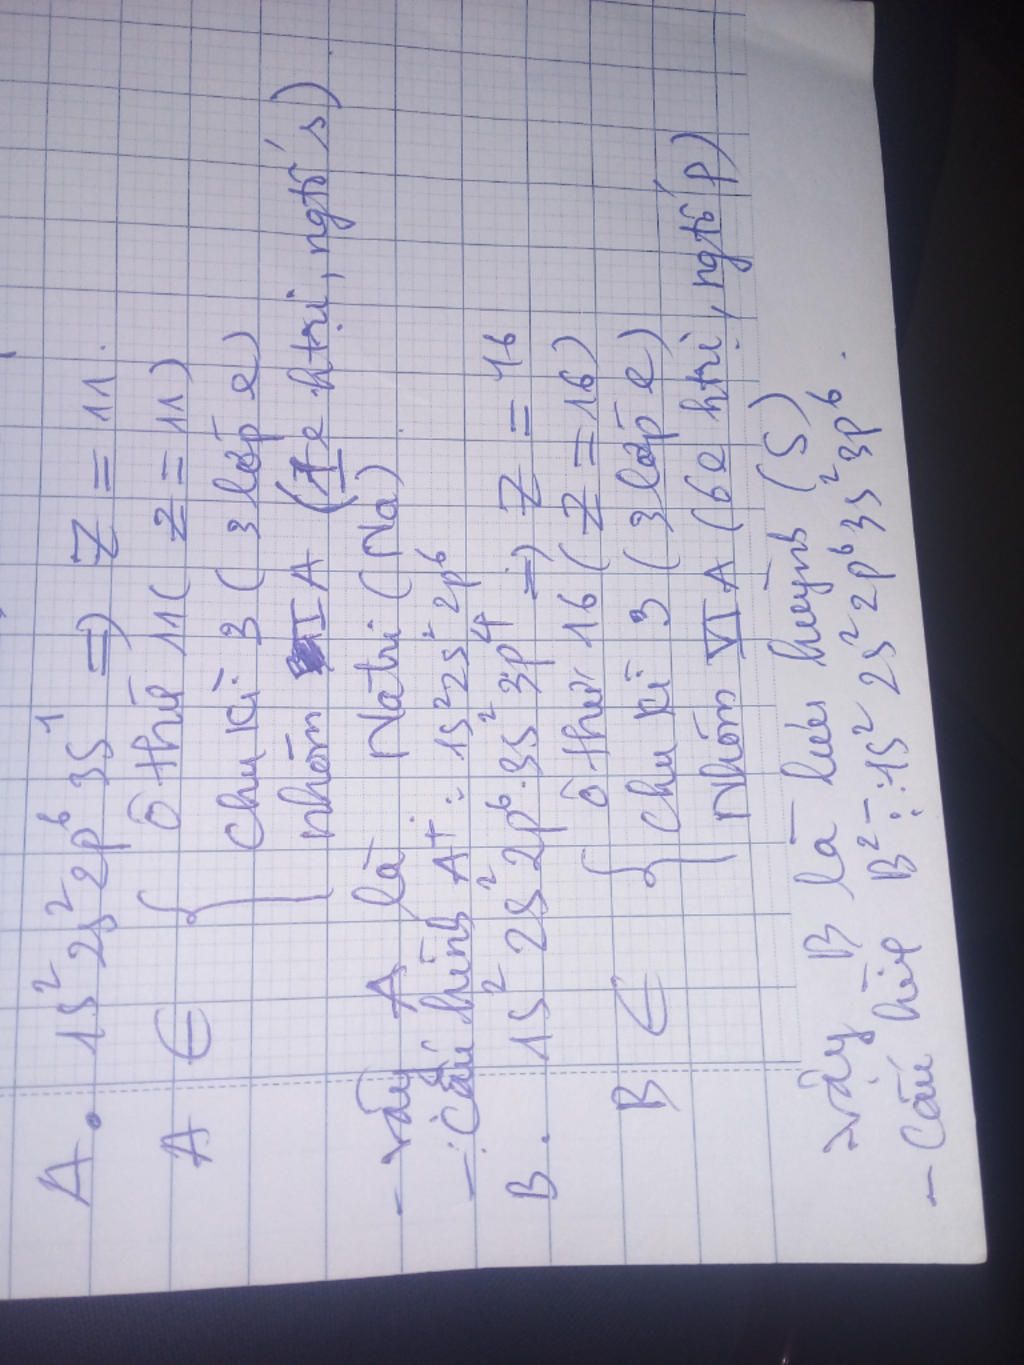 A. 1s² 2s² 2p⁶ 3s¹ => Z = 11.
A ∈ { Ô thứ 11 ( Z = 11)
chu kì 3 ( 3 lớp e)
nhóm IA (1e htrị, ngtố s)
- Vậy A là Natri (Na)
- Cấu hình A⁺: 1s² 2s² 2p⁶
B. 1s² 2s² 2p⁶ 3s² 3p⁴ => Z = 16
B ∈ { Ô thứ 16 ( Z = 16)
chu kì 3 ( 3 lớp e)
Nhóm VIA (6e htrị, ngtố p)
Vậy B là lưu huỳnh (S)
- Cấu hình B²⁻: 1s² 2s² 2p⁶ 3s² 3p⁶.